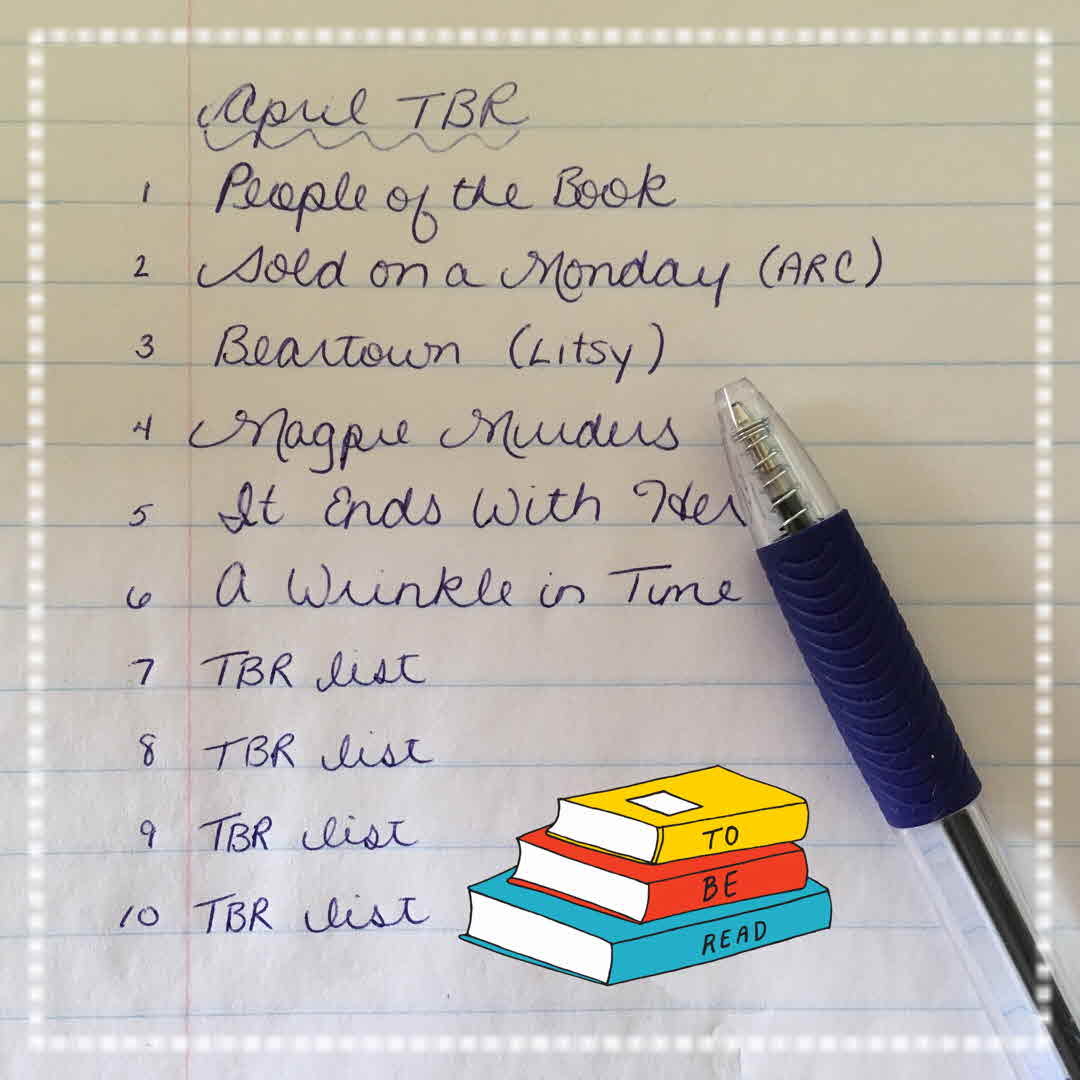 April TBR
1 People of the Book
2 Sold on a Monday (ARC)
3 Beartown (Litsy)
4 Magpie Murders
5 It Ends With Her
6 A Wrinkle in Time
7 TBR list
8 TBR list
9 TBR list
10 TBR list
TO
BE
READ